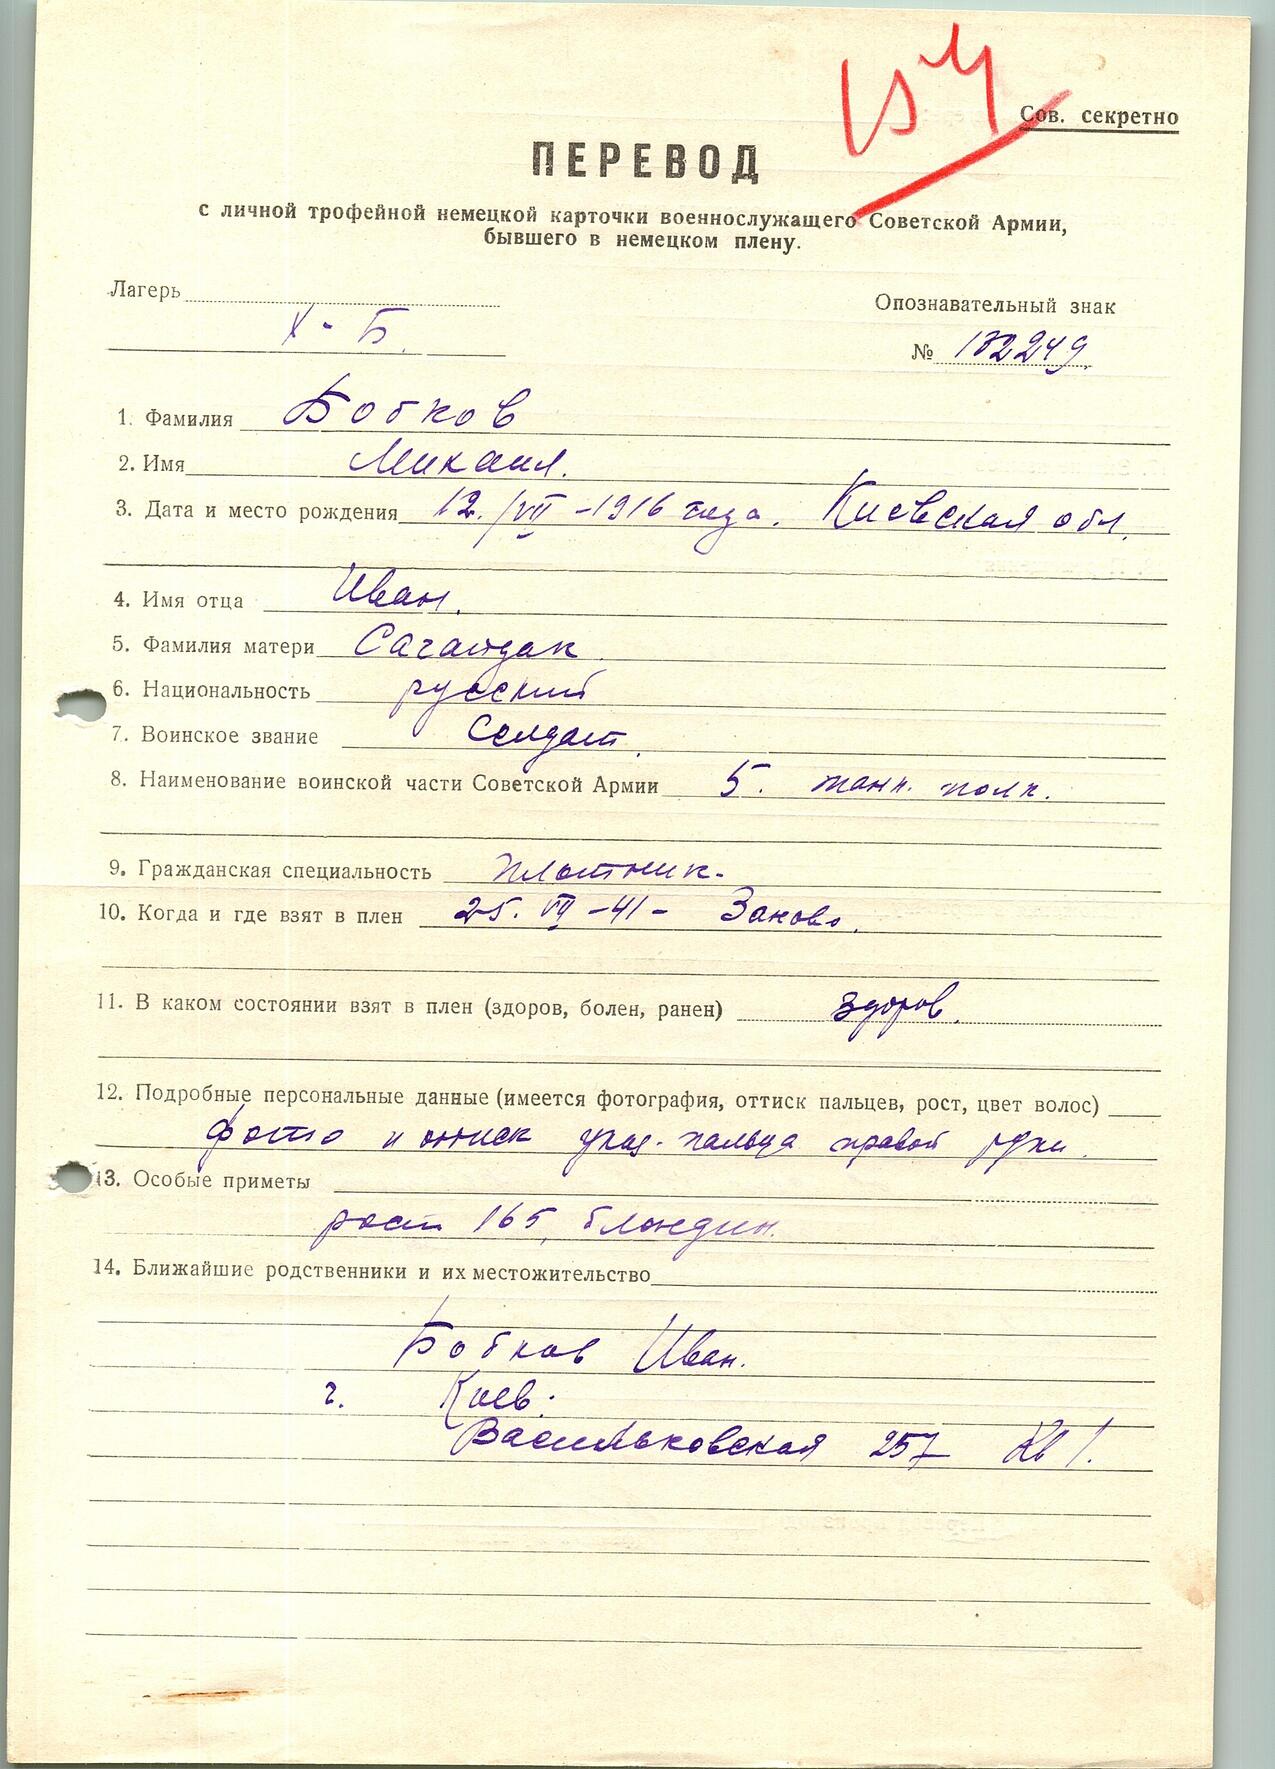 Сов. секретно
ПЕРЕВОД
с личной трофейной немецкой карточки военнослужащего Советской Армии,
бывшего в немецком плену.
Лагерь
Опознавательный знак
X - Б.
№ 182249
1. Фамилия Бобков
2. Имя Михаил.
3. Дата и место рождения 12./VII -1916 года. Киевская обл.
4. Имя отца Иван.
5. Фамилия матери Сагайдак.
6. Национальность русский
7. Воинское звание Солдат.
8. Наименование воинской части Советской Армии 5. танк. полк.
9. Гражданская специальность плотник.
10. Когда и где взят в плен 25. VII -41 - Заново.
11. В каком состоянии взят в плен (здоров, болен, ранен) здоров.
12. Подробные персональные данные (имеется фотография, оттиск пальцев, рост, цвет волос)
фото и оттиск указ. пальца правой руки.
13. Особые приметы
рост 165, блондин.
14. Ближайшие родственники и их местожительство
Бобков Иван.
г. Киев.
Васильковская 257 Кв 1.